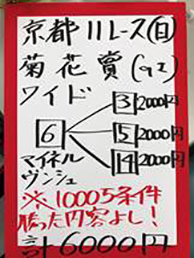 京都11レース(日)
菊花賞(GI)
ワイド
3 2000円
6 5 2000円
14 2000円
マイネル
ヴンシュ
※1000万条件
勝った内容よし!
計6000円